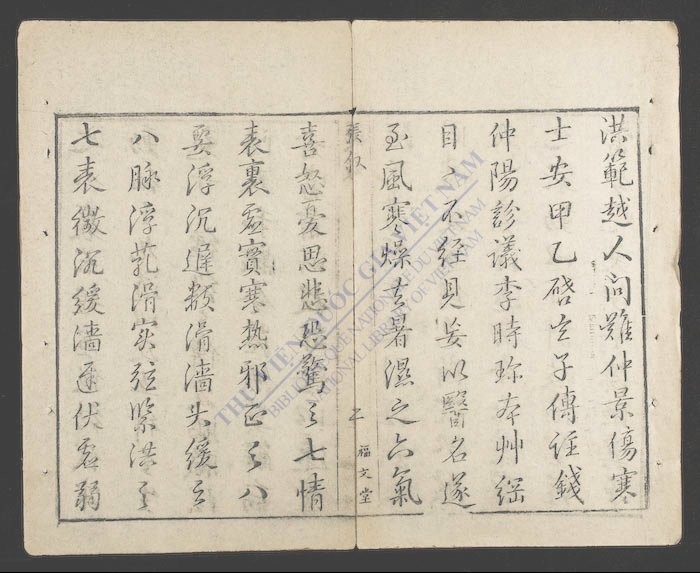 洪範越人問難仲景傷寒
士安甲乙啓玄子傳經錢
仲陽診議李時珍本艸綱
目之不經見妄以醫名遂
至風寒燥火暑濕之六氣
叙
二
福文堂
喜怒憂思悲恐驚之七情
表裏虛實寒熱邪正之八
要浮沉遲數滑濇大緩之
八脉浮芤滑実弦緊洪之
七表微沉緩濇遲伏虛弱
THƯ VIỆN QUỐC GIA VIỆT NAM
BIBLIOTHÈQUE NATIONALE DU VIETNAM
NATIONAL LIBRARY OF VIETNAM